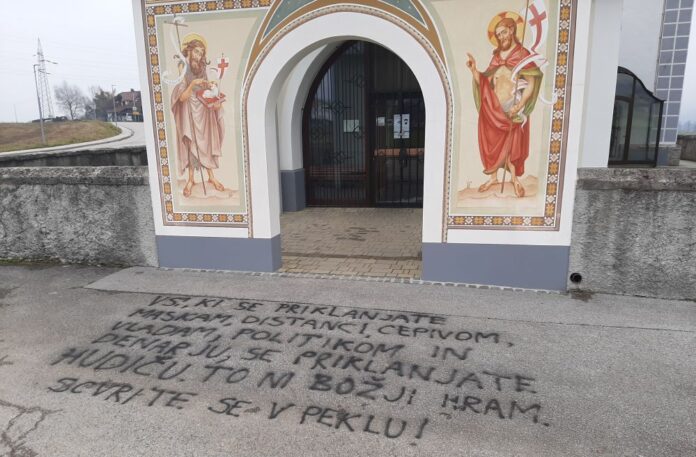 VSI, KI SE PRIKLANJATE
MASKAM, DISTANCI, CEPIVOM,
VLADAM, POLITIKOM IN
DENARJU, SE PRIKLANJATE
HUDIČU. TO NI BOŽJI HRAM.
SCVRITE SE V PEKLU!